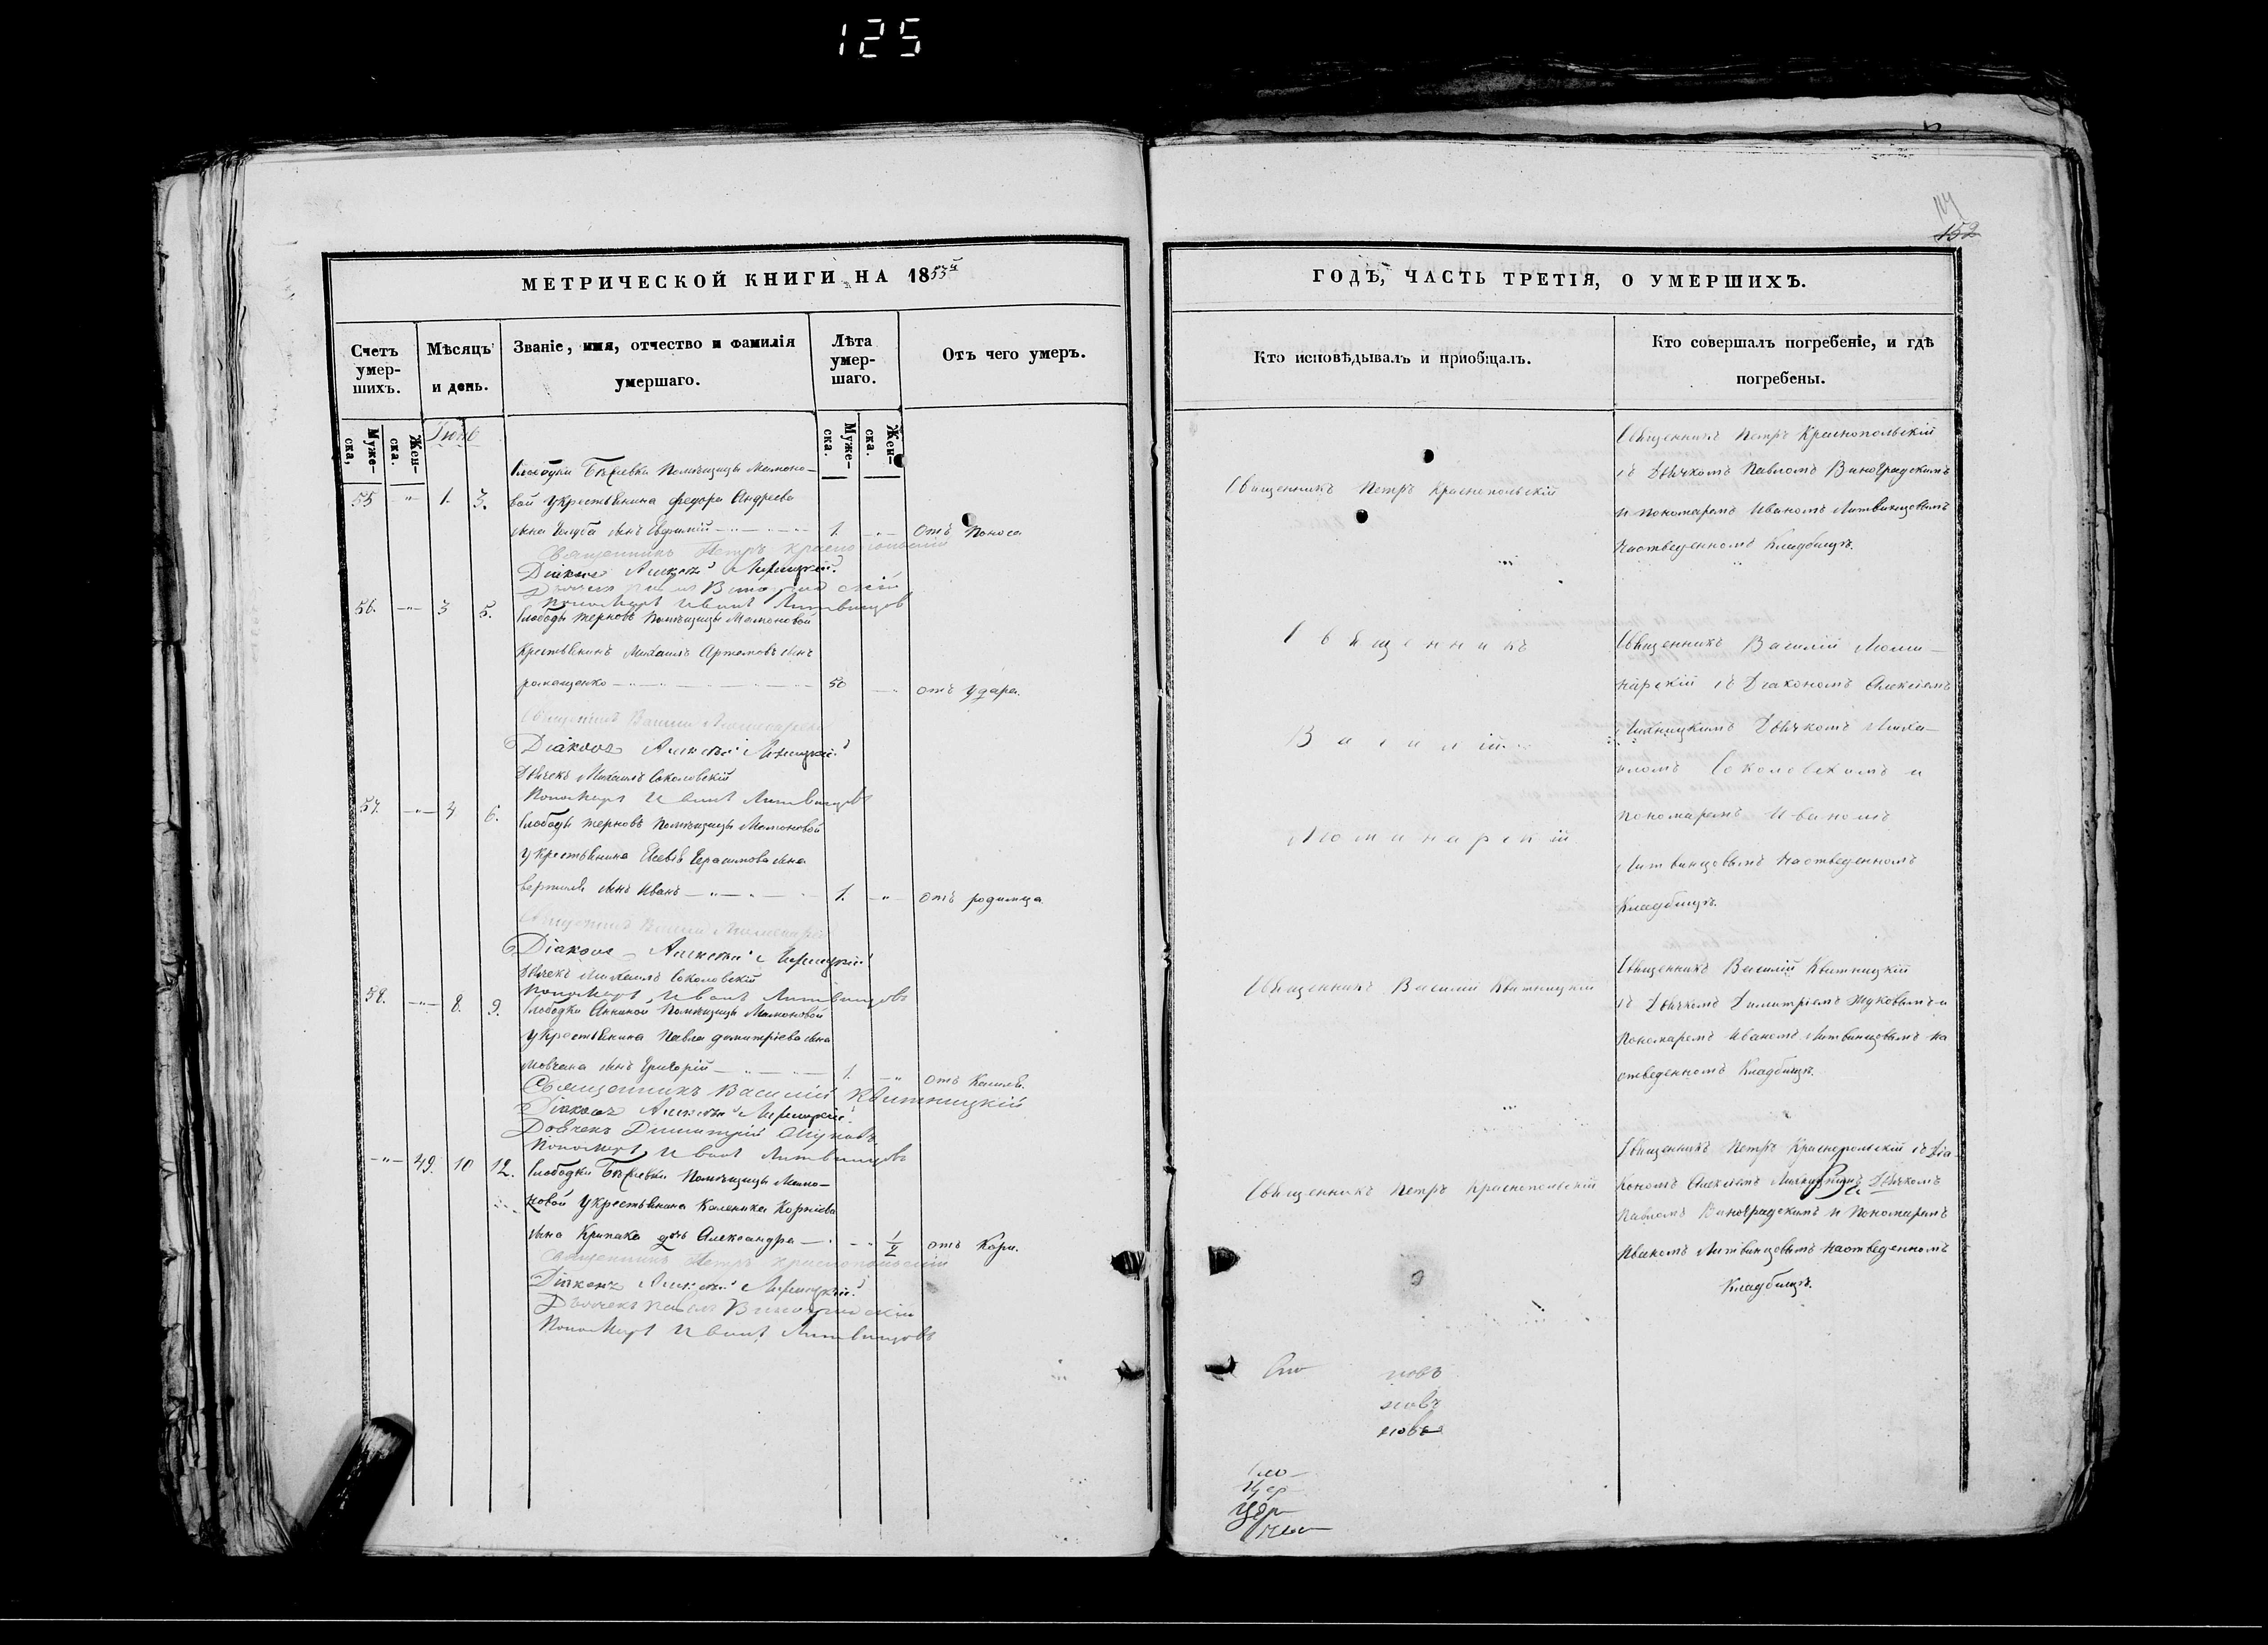 125
114
152
МЕТРИЧЕСКОЙ КНИГИ НА 1853й
Счетъ умер-шихъ.
Мѣсяцъ и день.
Званіе, имя, отчество и фамилія умершаго.
Лѣта умер-шаго.
Отъ чего умеръ.
Муже-ска,
Жен-ска.
Муже-ска.
Жен-ска.
Іюнь
Помѣщицы Мамоно-
55 " 1. 3. вой у крестьянина Федора Андреева
сына Голуба сынъ Евфимій 1. " отъ поноса
Священникъ Петръ Краснопольскій
Діаконъ Алексѣй
Дьячекъ Павелъ Виноградскій
Пономарь Иванъ Литвинцовъ
56. " 3 5. Слободы Терновъ Помѣщицы Мамоновой
Крестьянинъ Михаилъ Артемовъ сынъ
Романенко 50 " отъ удара.
Священникъ Василій
Діаконъ Алексѣй
Дьячекъ Михаилъ Соколовскій
Пономарь Иванъ Литвинцовъ
57. " 4 6. Слободы Терновъ Помѣщицы Мамоновой
у крестьянина Герасимова сына
сынъ Иванъ 1. " отъ родимца
Священникъ Василій
Діаконъ Алексѣй
Дьячекъ Михаилъ Соколовскій
Пономарь Иванъ Литвинцовъ
58. " 8. 9. Слободки Анниной Помѣщицы Мамоновой
у крестьянина Павла Димитріева сына
Мовчана сынъ Григорій 1. " отъ кашля.
Священникъ Василій Квитницкій
Діаконъ Алексѣй
Дьячекъ Димитрій Жуковъ
Пономарь Иванъ Литвинцовъ
" 49. 10 12. Слободки Помѣщицы Мамо-
новой у крестьянина Каленика Корніева
сына Крипака дочь Александра " 1/2 отъ кори.
Священникъ Петръ Краснопольскій
Діаконъ Алексѣй
Дьячекъ Павелъ Виноградскій
Пономарь Иванъ Литвинцовъ
ГОДЪ, ЧАСТЬ ТРЕТІЯ, О УМЕРШИХЪ.
Кто исповѣдывалъ и пріобщалъ.
Кто совершалъ погребеніе, и гдѣ погребены.
Священникъ Петръ Краснопольскій
Священникъ Петръ Краснопольскій
съ Дьячкомъ Павломъ Виноградскимъ
и пономаремъ Иваномъ Литвинцовымъ
на отведенномъ кладбищѣ.
Священникъ
Василій
Священникъ Василій
съ Діакономъ Алексѣемъ
Дьячкомъ Миха-
иломъ Соколовскимъ и
пономаремъ Иваномъ
Литвинцовымъ на отведенномъ
кладбищѣ.
Священникъ Василій Квитницкій
Священникъ Василій Квитницкій
съ Дьячкомъ Димитріемъ Жуковымъ и
пономаремъ Иваномъ Литвинцовымъ на
отведенномъ кладбищѣ.
Священникъ Петръ Краснопольскій
Священникъ Петръ Краснопольскій съ Діа-
кономъ Алексѣемъ Дьячкомъ
Павломъ Виноградскимъ и пономаремъ
Иваномъ Литвинцовымъ на отведенномъ
кладбищѣ.
новъ
новъ